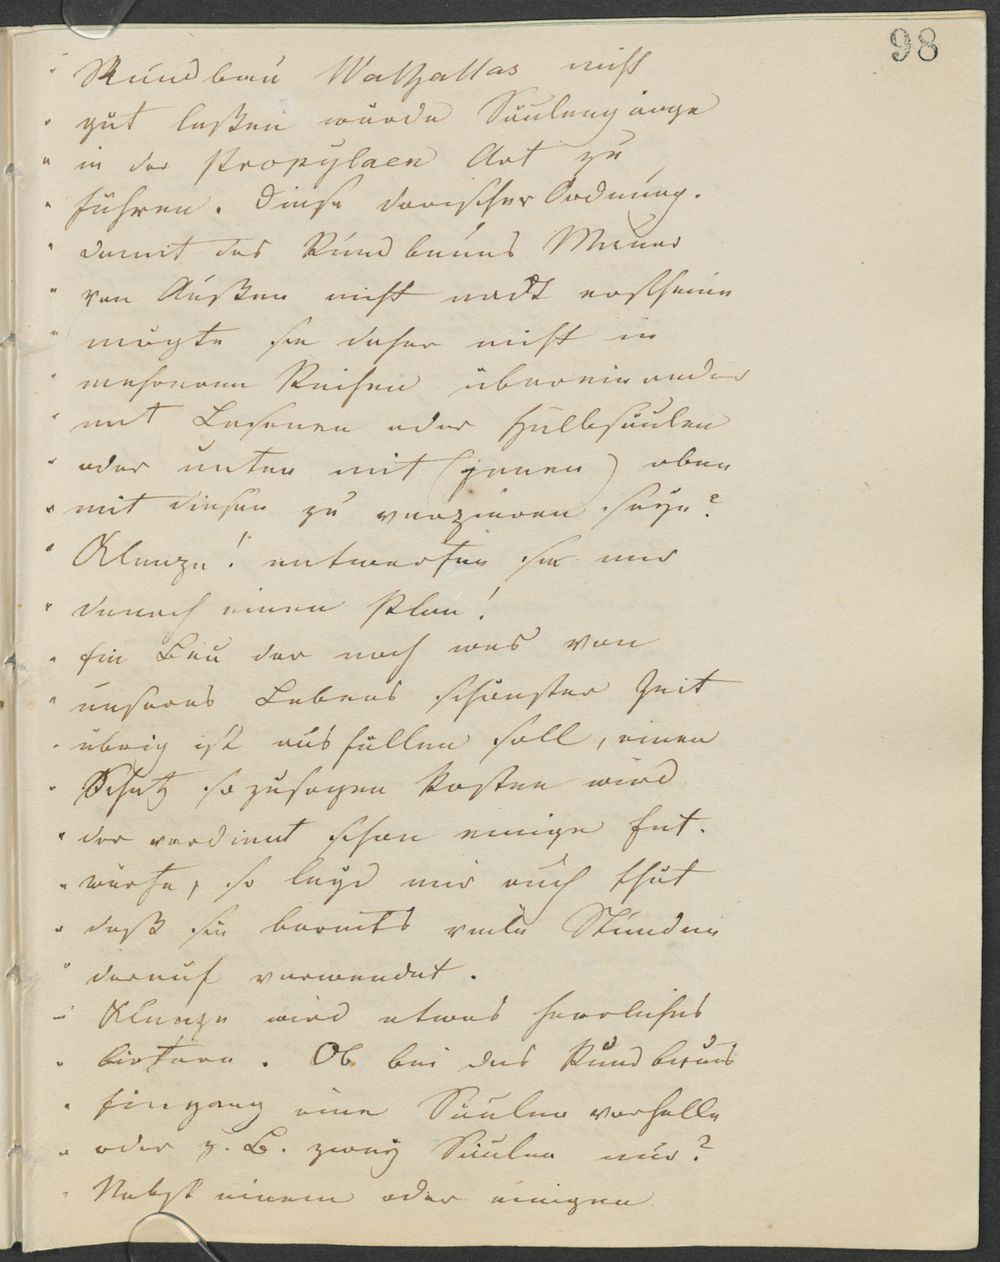 98
" Rundbau Walhallas nicht
" gut laßen würde Säulengänge
" in der Propylaen Art zu
" führen. Diese dorischer Ordnung.
" damit des Rundbaues Mauer
" von Außen nicht nackt erscheine
" mögte sie daher nicht in
" mehreren Reihen übereinander
" mit Lesenen oder Halbsäulen
" oder unten mit (jenen) oben
" mit diesen zu verzieren seye?
" Klenze! entwerfen sie mir
" danach einen Plan!
" Ein Bau der noch was von
" unseres Lebens schönster Zeit
" übrig ist ausfüllen soll, einen
" Schatz so zusagen kosten wird
" der verdient schon einige Ent-
" würfe, so leyd mir auch thut
" daß sie bereits viele Stunden
" darauf verwendet.
" Klenze wird etwas herrliches
" liefern. Ob bei des Rundbaues
" Eingang eine Säulen vorhalle
" oder z. B. zwey Säulen nur?
" Nebst einem oder einigen